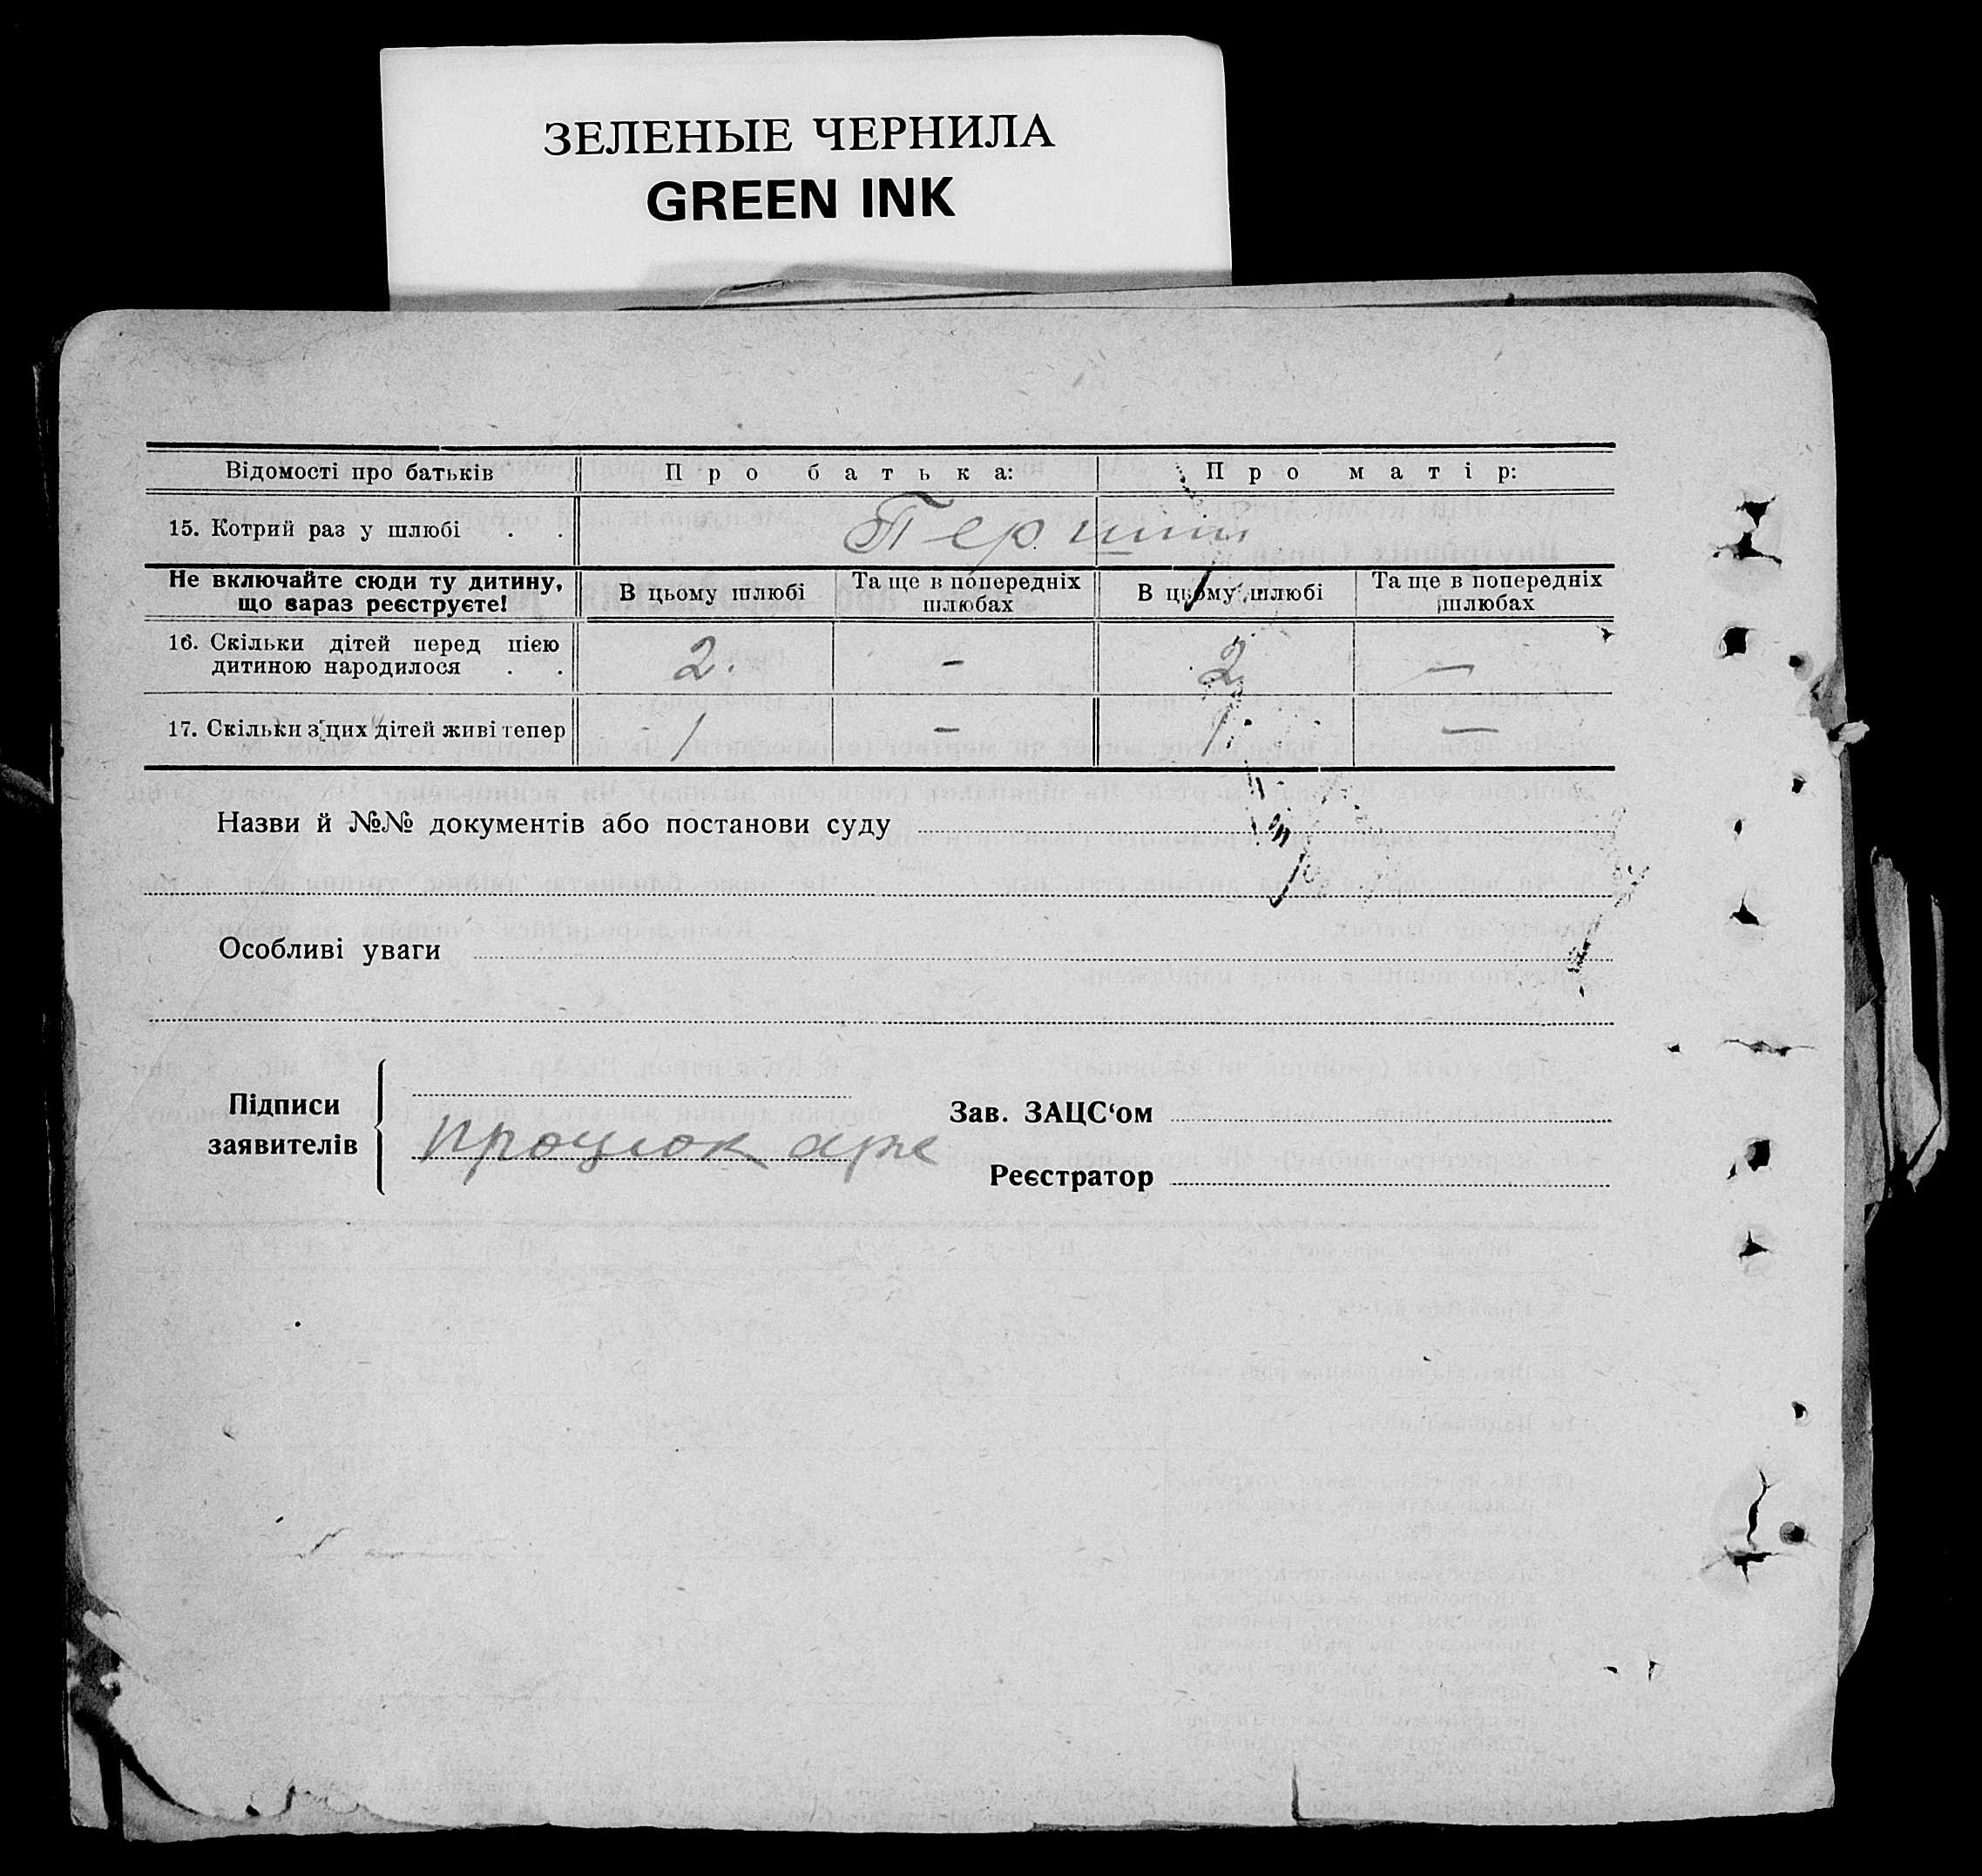 ЗЕЛЕНЫЕ ЧЕРНИЛА
GREEN INK
Відомості про батьків Про батька: Про матір:
15. Котрий раз у шлюбі . . Перший
Не включайте сюди ту дитину, що зараз реєструєте! В цьому шлюбі Та ще в попередніх шлюбах В цьому шлюбі Та ще в попередніх шлюбах
16. Скільки дітей перед цією
дитиною народилося . . 2. – 2 —
17. Скільки з цих дітей живі тепер 1 – 1 —
Назви й №№ документів або постанови суду
Особливі уваги
Підписи
заявителів
Зав. ЗАЦС‘ом
Процюк
Реєстратор